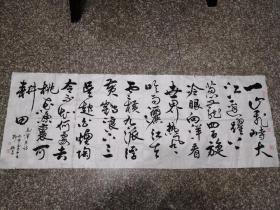 一山飞峙大
江边跃上
葱茏四百旋
冷眼向洋看
世界热风
吹雨洒江天
云横九派浮
黄鹤浪下三
吴起白烟陶
令不知何处去
桃花源里可
耕田